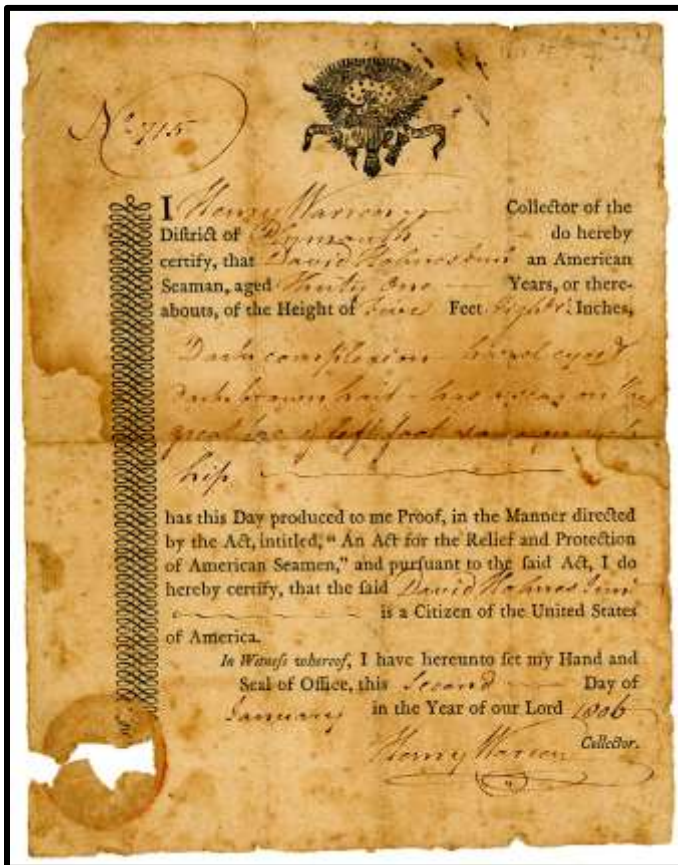 No 715
I Henry Warren Collector of the
District of Plymouth do hereby
certify, that David Holmes Junr an American
Seaman, aged thirty one Years, or there-
abouts, of the Height of five Feet Eight Inches,
Dark complexion hazel eyes &
dark brown hair - has a scar on the
great toe of left foot
hip
has this Day produced to me Proof, in the Manner directed
by the Act, intitled, “ An Act for the Relief and Protection
of American Seamen,” and pursuant to the said Act, I do
hereby certify, that the said David Holmes Junr
is a Citizen of the United States
of America.
In Witness whereof, I have hereunto set my Hand and
Seal of Office, this Second Day of
January in the Year of our Lord 1806
Henry Warren Collector.